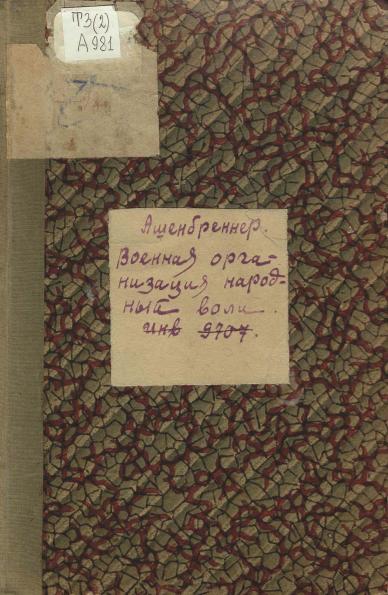 ТЗ(2)
А981
Ашенбреннер.
Военная орга-
низация народ-
ный воли.
инв 9707.